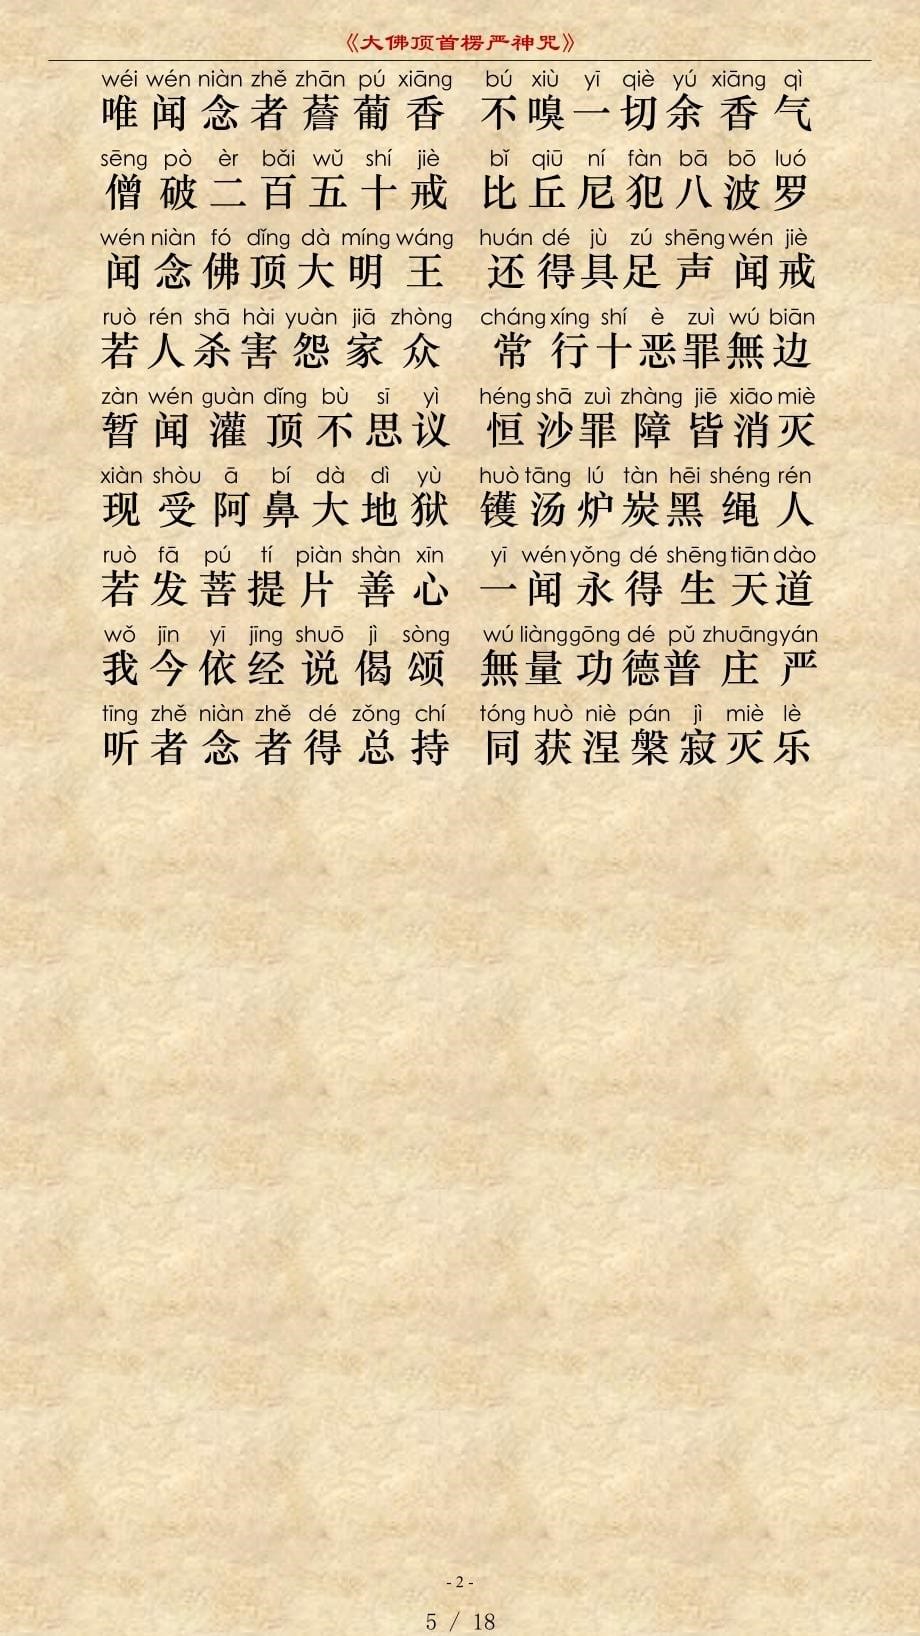 《大佛顶首楞严神咒》
wéi wén niàn zhě zhān pú xiāng bú xiù yī qiè yú xiāng qì
唯闻念者薝葡香 不嗅一切余香气
sēng pò èr bǎi wǔ shí jiè bǐ qiū ní fàn bā bō luó
僧破二百五十戒 比丘尼犯八波罗
wén niàn fó dǐng dà míng wáng huán dé jù zú shēng wén jiè
闻念佛顶大明王 还得具足声闻戒
ruò rén shā hài yuàn jiā zhòng cháng xíng shí è zuì wú biān
若人杀害怨家众 常行十恶罪無边
zàn wén guàn dǐng bù sī yì héng shā zuì zhàng jiē xiāo miè
暂闻灌顶不思议 恒沙罪障皆消灭
xiàn shòu ā bí dà dì yù huò tāng lú tàn hēi shéng rén
现受阿鼻大地狱 镬汤炉炭黑绳人
ruò fā pú tí piàn shàn xīn yī wén yǒng dé shēng tiān dào
若发菩提片善心 一闻永得生天道
wǒ jīn yī jīng shuō jì sòng wú liàng gōng dé pǔ zhuāng yán
我今依经说偈颂 無量功德普庄严
tīng zhě niàn zhě dé zǒng chí tóng huò niè pán jì miè lè
听者念者得总持 同获涅槃寂灭乐
- 2 -
5 / 18